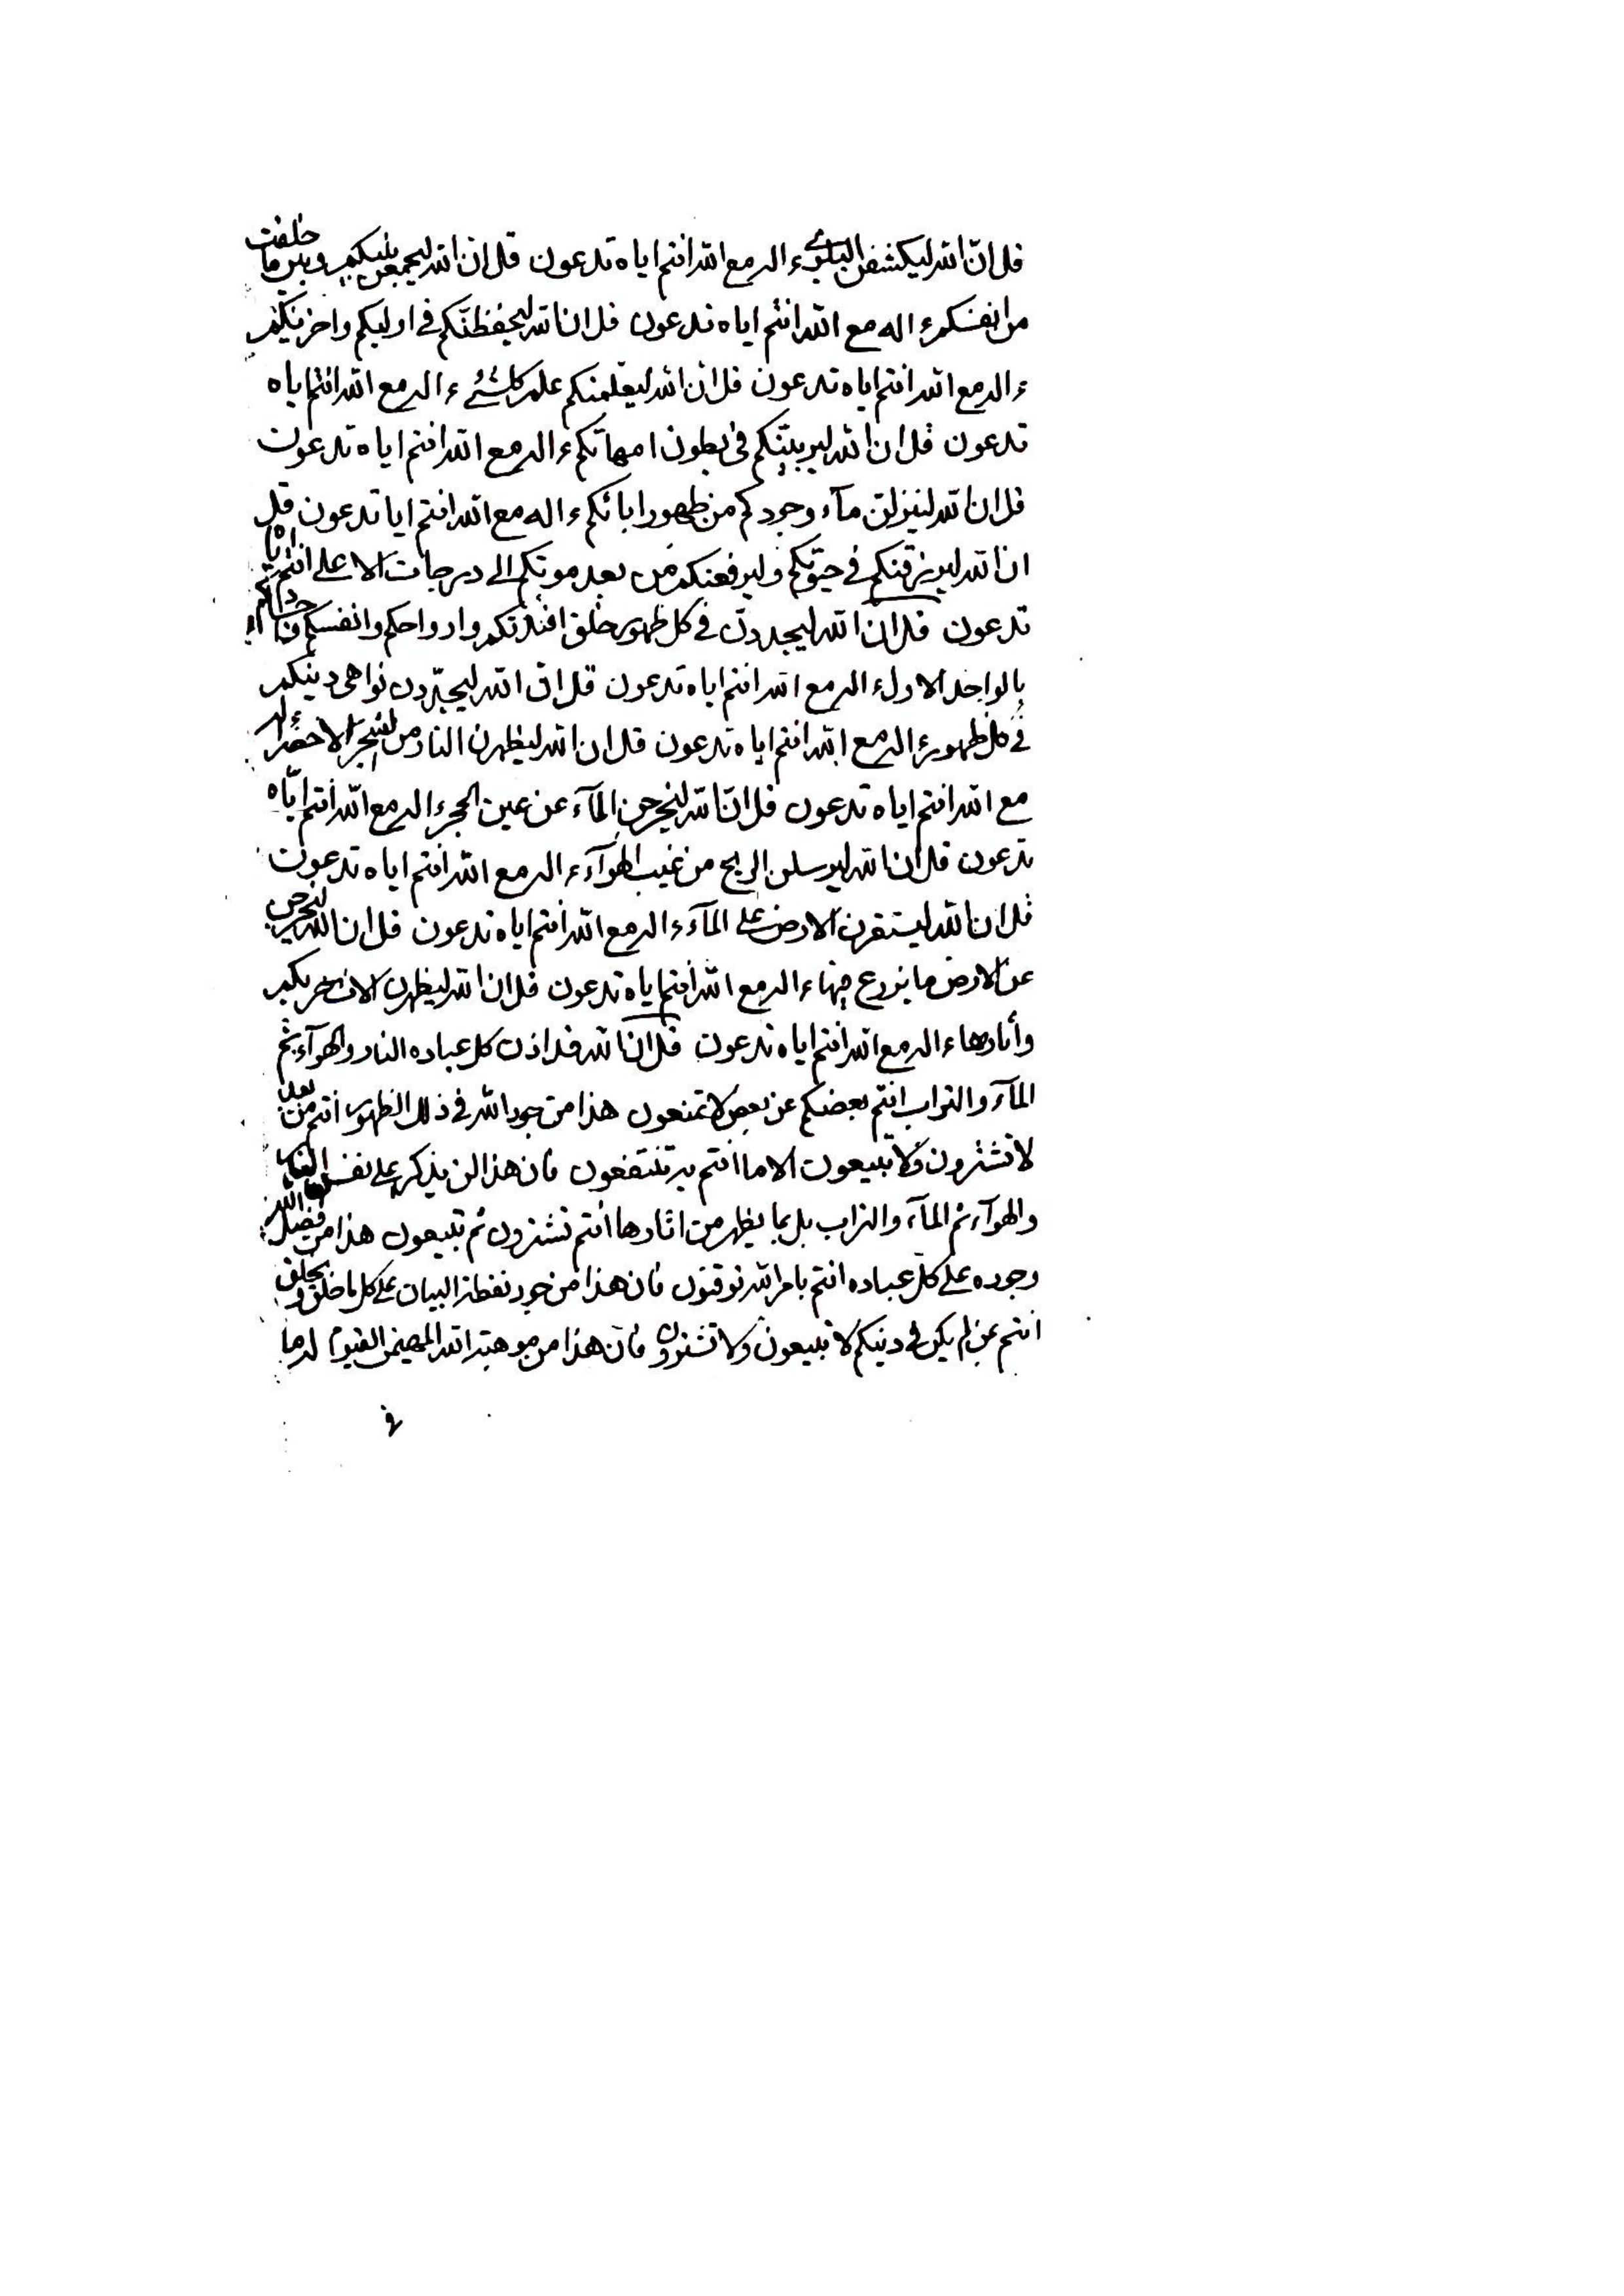 قل ان الله ليكشفن البلوى ءاله مع الله انتم اياه تدعون قل ان الله ليجمعن بينكم وبين ما خلقت
من انفسكم ءاله مع الله انتم اياه تدعون قل ان الله ليحفظنكم في اوليكم واخريكم
ءاله مع الله انتم اياه تدعون قل ان الله ليعلمنكم علم كلشئ ءاله مع الله انتم اياه
تدعون قل ان الله ليربينكم في بطون امهاتكم ءاله مع الله انتم اياه تدعون
قل ان الله لينزلن مآء وجودكم من ظهور ابائكم ءاله مع الله انتم ايا تدعون قل
ان الله ليرزقنكم في حيوتكم وليرفعنكم من بعد موتكم الى درجات الاعلى انتم اياه
تدعون قل ان الله ليجددن في كل ظهور خلق افئدتكم وارواحكم وانفسكم
بالواحد الاول ءاله مع الله انتم اياه تدعون قل ان الله ليجددن نواهى دينكم
في كل ظهور ءاله مع الله انتم اياه تدعون قل ان الله ليظهرن النار من الشجر الاخضر ءاله
مع الله انتم اياه تدعون قل ان الله ليخرجن المآء عن عين الحجر ءاله مع الله انتم اياه
تدعون قل ان الله ليرسلن الريح من غيب الهوآء ءاله مع الله انتم اياه تدعون
قل ان الله ليستقرن الارض على المآء ءاله مع الله انتم اياه تدعون قل ان الله ليخرجن
عن الارض ما يزرع فيها ءاله مع الله انتم اياه تدعون قل ان الله ليظهرن
وأثارها ءاله مع الله انتم اياه تدعون قل ان الله قد اذن كل عباده النار والهوآء ثم
المآء والتراب انتم بعضكم عن بعض لا تمنعون هذا من جود الله في ذلك الظهور انتم من بعد
لا تشترون ولا تبيعون الا ما انتم به تنتفعون فان هذا لن يذكر على نفس النار
والهوآء ثم المآء والتراب بل بما يظهر من اثارها انتم تشترون ثم تبيعون هذا من فضل الله
وجوده على كل عباده انتم بامر الله توقنون فان هذا من جود نقطة البيان على كل ما خلق ويخلق
انتم عمن لم يكن في دينكم لا تبيعون ولا تشترون فان هذا من موهبة الله المهيمن القيوم له ما
في